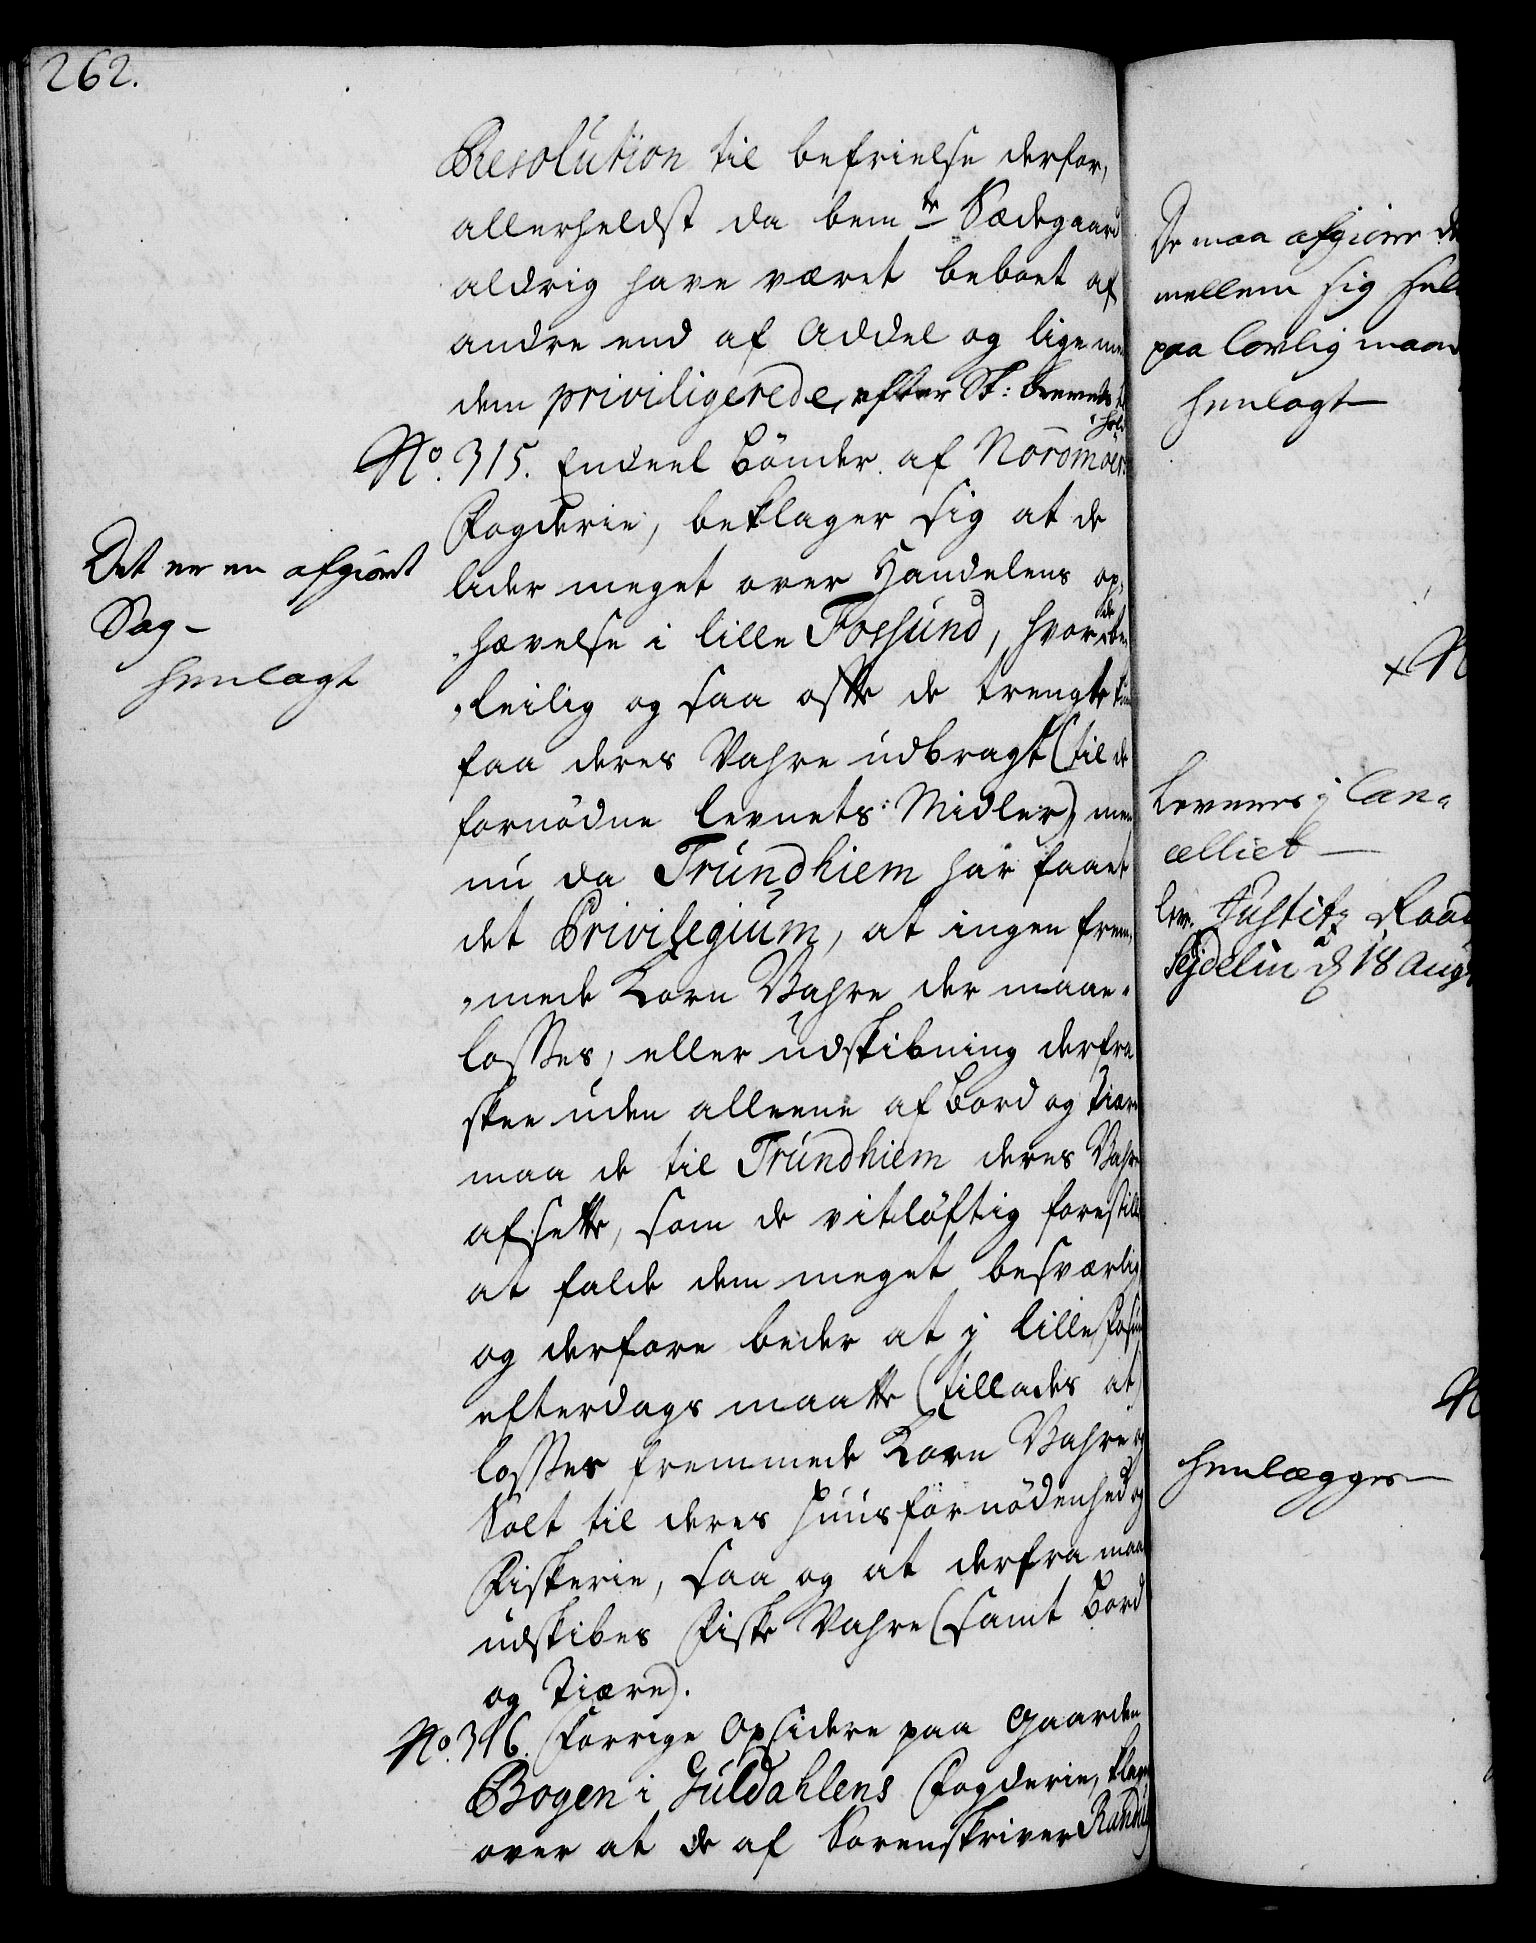 262.
Resolution til befrielse derfor,
allerheldst da bem.te Sædegaard
aldrig have været beboet af
andre end af Addel og lige med
dem priviligerede, efter St: brevets
No. 315. Endeel Bønder af Nordmoers
Fogderie, beklager sig at de
lider meget over Handelens op,
hævelse i lille Fossund, hvor de be,
leilig og saa ofte de trengte kunde
faa deres Vahre udbragt (til de
fornødne levnets: Midler) men
nu da Trundhiem har faaet
det Privilegium, at ingen frem,
mede Korn Vahre der maae
losses, eller udskibning derfra
skee uden alleene af Bord og Tiære
maa de til Trundhiem deres Vahre
afsette, som de vitløftig forestille
at falde dem meget besværlig
og derfore beder at j lille Fosund
efterdags maatte (tillades at)
losses fremmede Korn Vahre og
Salt til deres Huusfornødenhed og
Fiskerie, saa og at derfra maa
udskibes Fiske Vahre (samt Bord
og Tiære).
No. 316. Forrige Opsidere paa Gaarden
Bogen i Guldahlens Fogderie, klager
over at de af Sorenskriver
Det er en afgiort
Sag -
henlagt
De maa afgiøre
mellem sig
paa lovlig maade
henlagt
x N
Leveres j Can=
celliet
lev. Justitz Raad
Sejdelin d. 18 Aug
N
henlægges